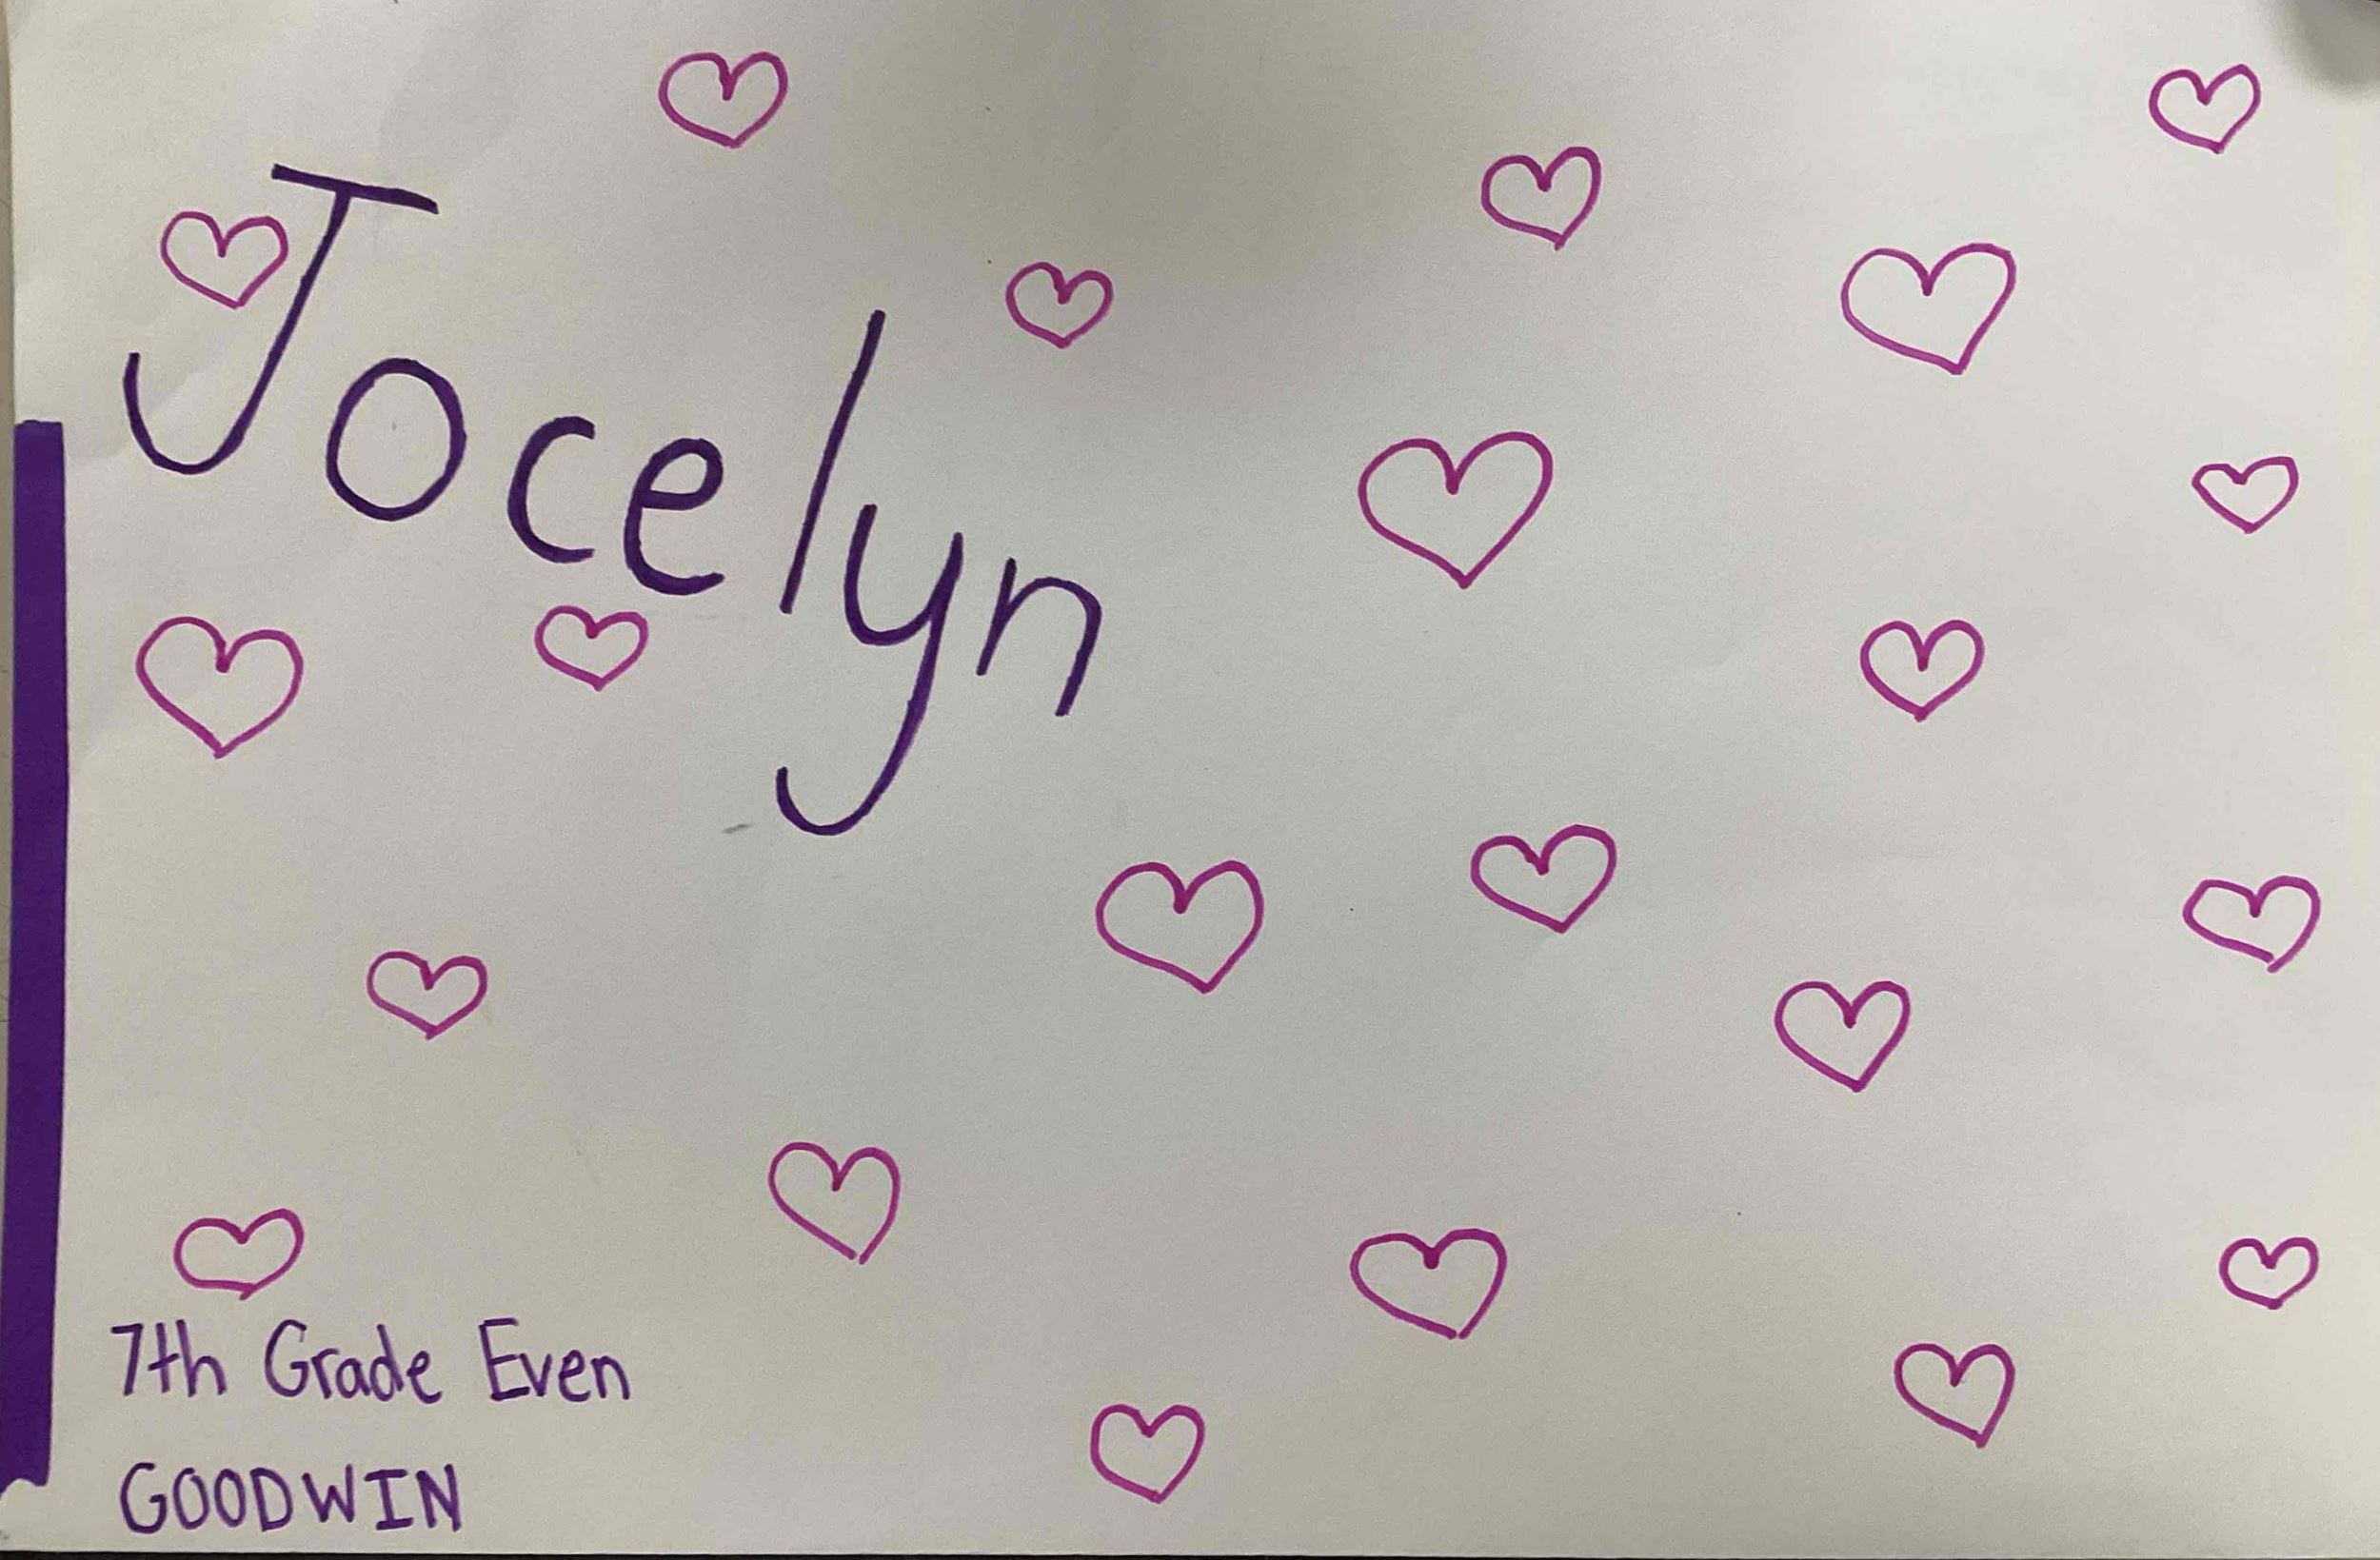 Jocelyn
7th Grade Even
GOODWIN